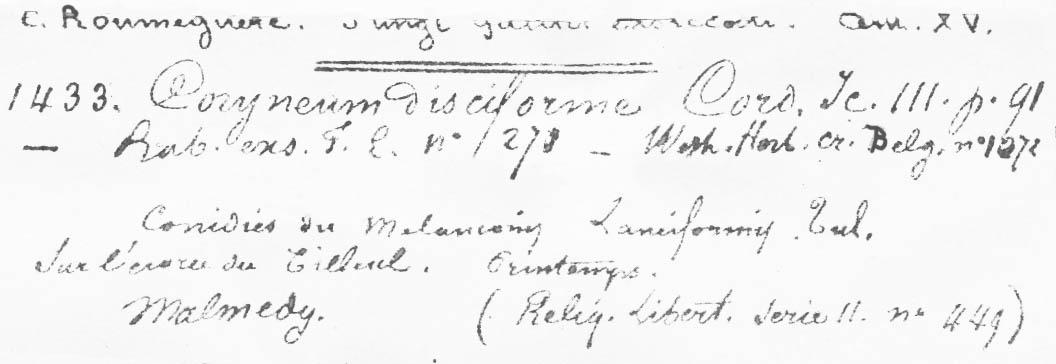 C. Roumeguère. Fungi Cent. XV.
1433. Coryneum disciforme Cord. Ic. III. p. 91
— Rab. exs. F. E. n° 1278 — West. Herb. cr. Belg. n° 1072
Conidies du Melanconis Lanciformis Tul.
Sur l'écorce du Tilleul. Printemps.
Malmedy. (Reliq. Libert. Serie II. n° 449)